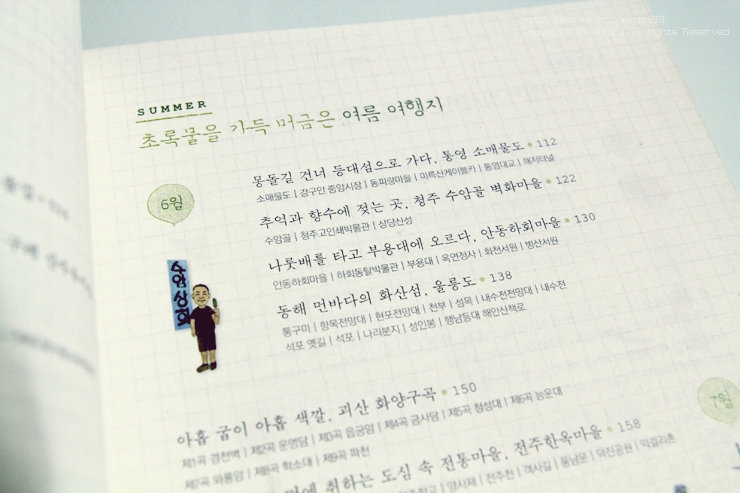 All Rights Reserved
SUMMER
초록물을 가득 머금은 여름 여행지
6월
몽돌길 건너 등대섬으로 가다, 통영 소매물도 • 112
소매물도 | 강구안 중앙시장 | 동피랑마을 | 미륵산케이블카 | 통영대교 | 해저터널
추억과 향수에 젖는 곳, 청주 수암골 벽화마을 • 122
수암골 | 청주고인쇄박물관 | 상당산성
나룻배를 타고 부용대에 오르다, 안동하회마을 • 130
안동하회마을 | 하회동탈박물관 | 부용대 | 옥연정사 | 화천서원 | 병산서원
동해 먼바다의 화산섬, 울릉도 • 138
통구미 | 향목전망대 | 현포전망대 | 천부 | 섬목 | 내수전전망대 | 내수전
석포 옛길 | 석포 | 나리분지 | 성인봉 | 행남등대 해안산책로
수암상회
아홉 굽이 아홉 색깔, 괴산 화양구곡 • 150
제1곡 경천벽 | 제2곡 운영담 | 제3곡 읍궁암 | 제4곡 금사담 | 제5곡 첨성대 | 제6곡 능운대
제7곡 와룡암 | 제8곡 학소대 | 제9곡 파천
7월
취하는 도심 속 전통마을, 전주한옥마을 • 158
양사재 | 전주천 | 객사길 | 풍남문 | 덕진공원 | 막걸리촌